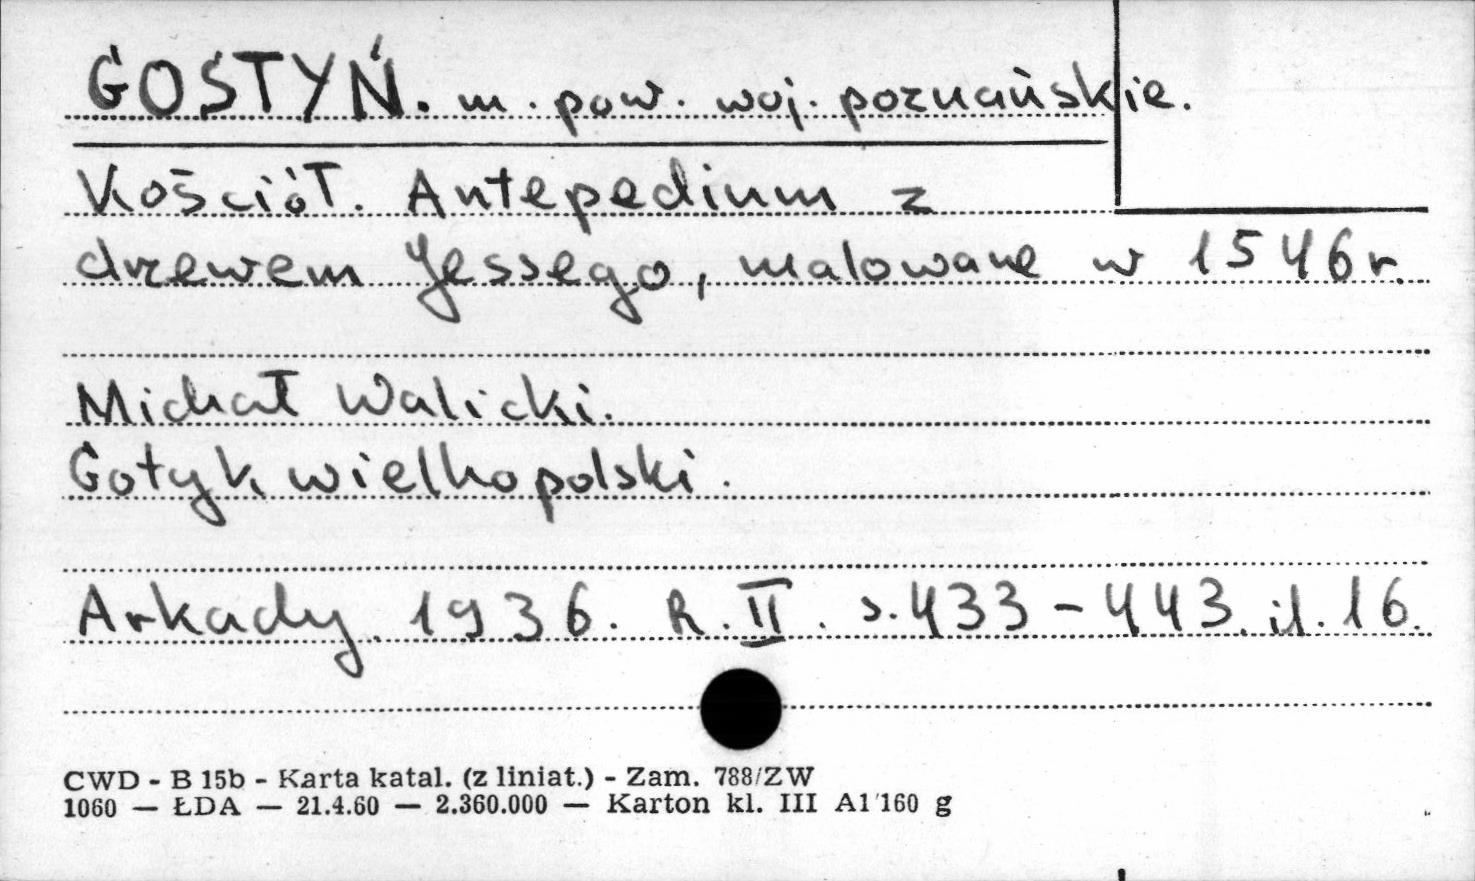 GOSTYŃ. m. pow. woj. poznańskie.
Kościół. Antepedium z
drzewem Jessego, malowane w 1546 r.
Michał Walicki.
Gotyk wielkopolski.
Arkady. 1936. R. II. s. 433-443. il. 16.
CWD - B 15b - Karta katal. (z liniat.) - Zam. 788/ZW
1060 — ŁDA — 21.4.60 — 2.360.000 — Karton kl. III A1 160 g